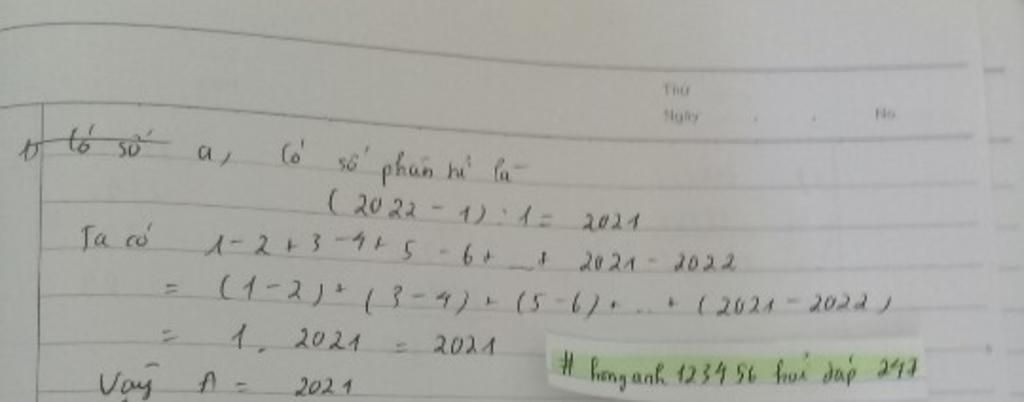 Thứ
Ngày . . No
1) Có số a, Có số phần tử là
(2022 - 1) : 1 = 2021
Ta có 1 - 2 + 3 - 4 + 5 - 6 + ... + 2021 - 2022
= (1 - 2) + (3 - 4) + (5 - 6) + ... + (2021 - 2022)
= 1 . 2021 = 2021
Vậy A = 2021
# honganh 123456 hỏi đáp 247